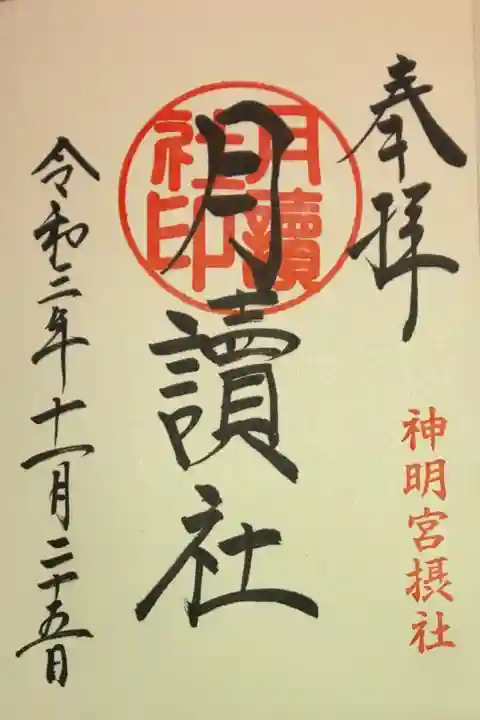 奉拝
神明宮摂社
月讀社
月讀
社印
令和三年十一月二十五日